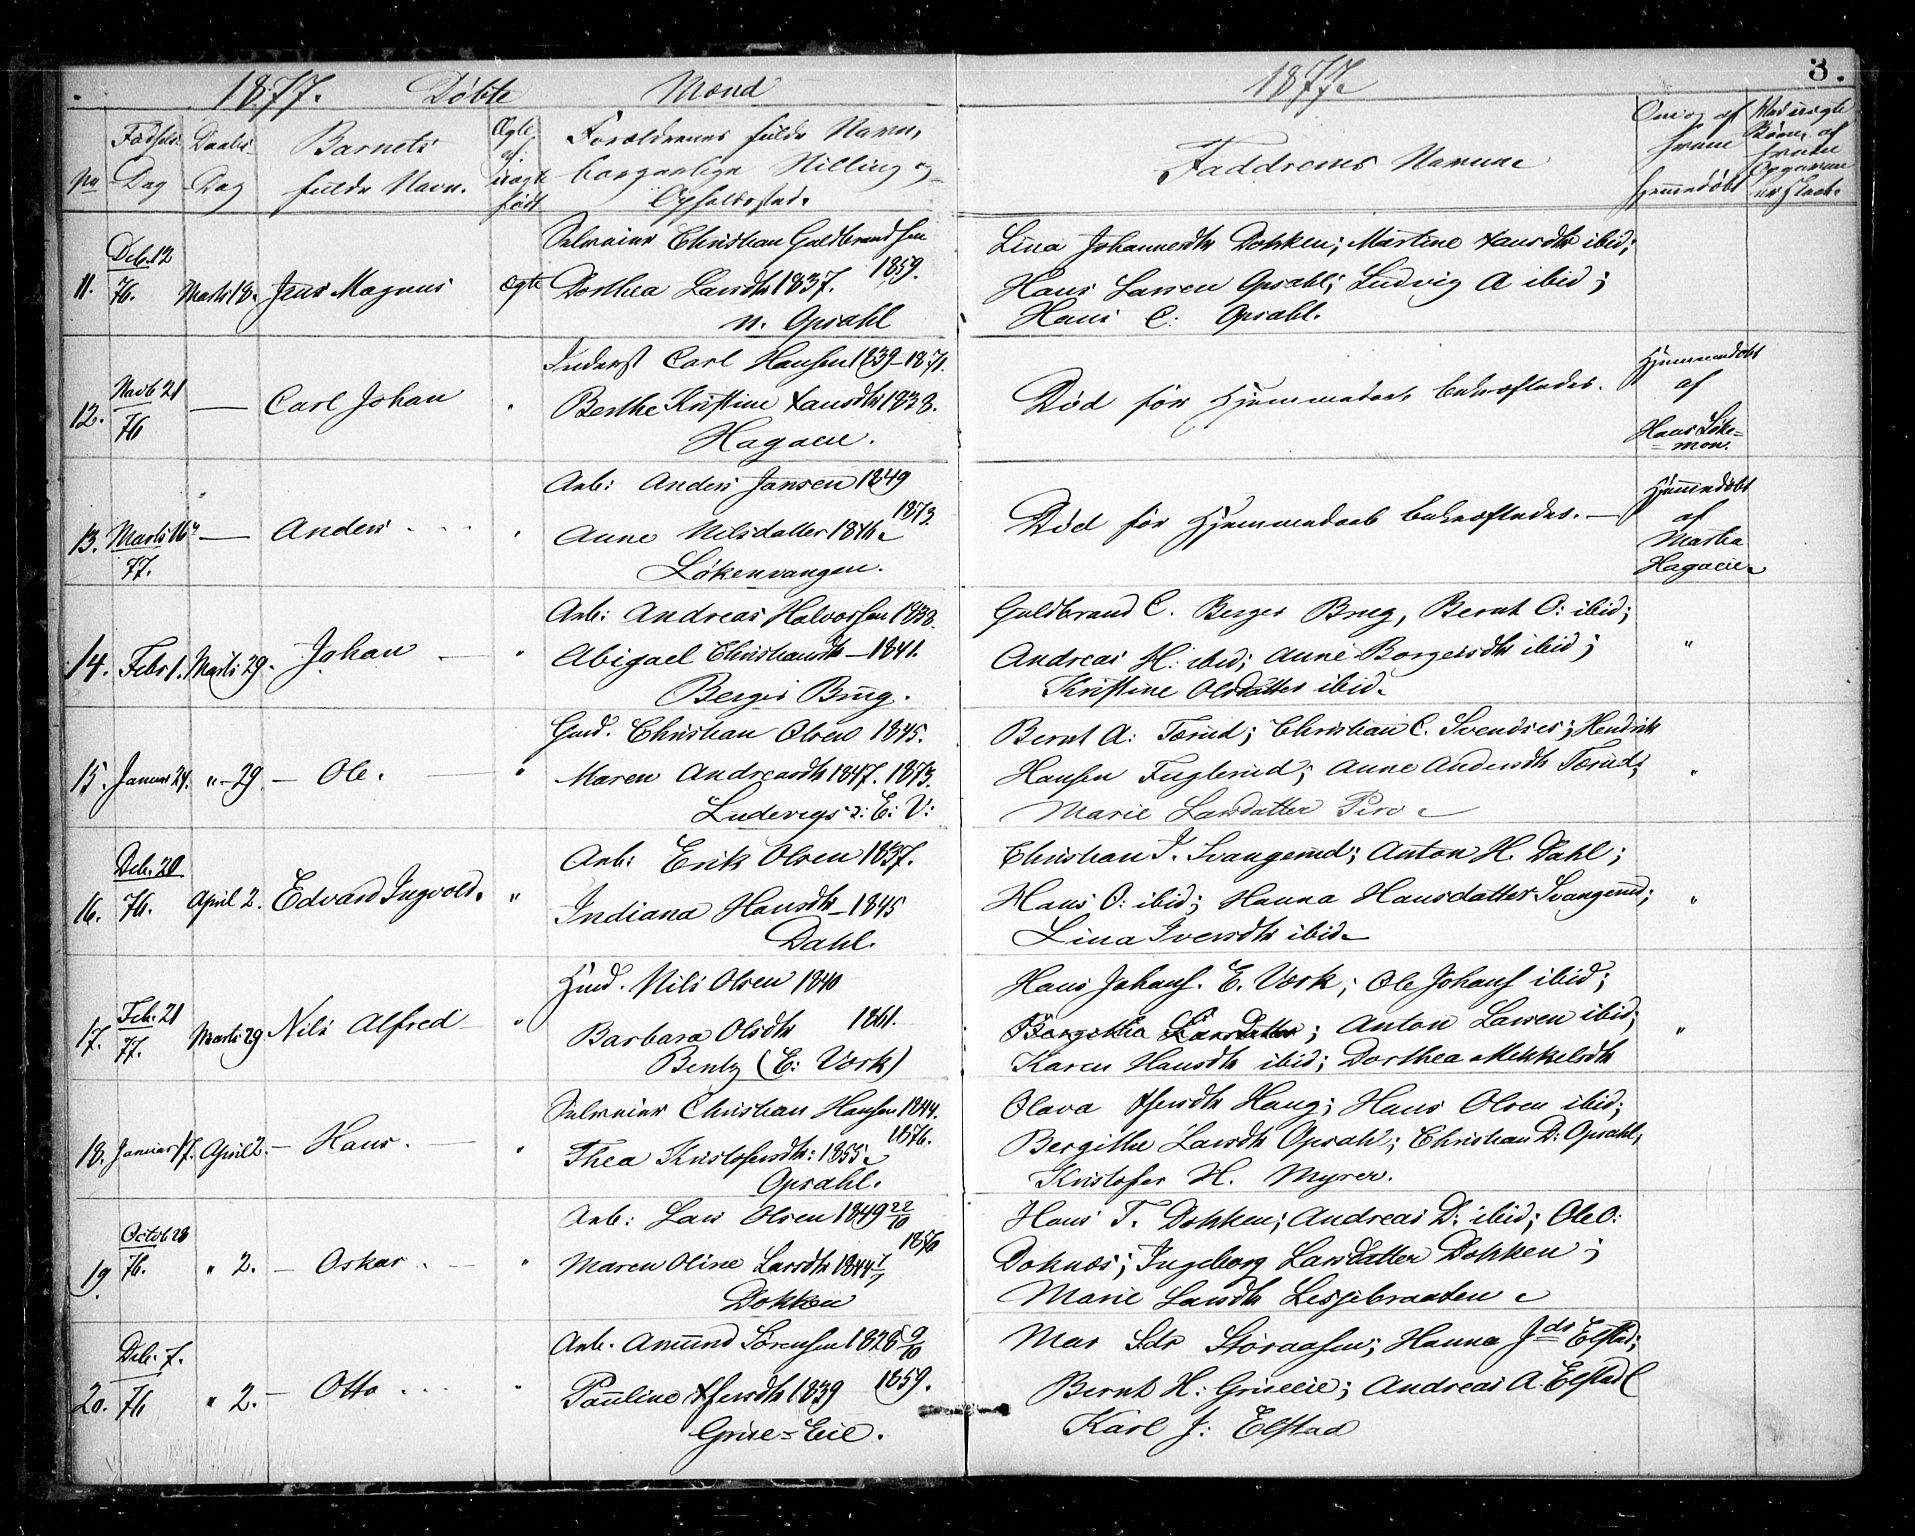 1877. Døbte Mænd
1877.
3.
No
Fødsels-
Dag
Daabs-
Dag
Barnets
fulde Navn.
Ægte
el.
uægte
født
Forældrenes fulde Navne,
borgerlige Stilling og
Opholdssted.
Faddrenes Navne
Om og af
hvem
hjemmedøbt
Ved uægte
Børn, af
hvem
11. Deb. 12
76. Marts 18. Jens Magnus ægte
Selveier Christian Guldbrandsen
Dorthea Larsdtr 1837. 1859.
n. Opsahl
Lina Johannesdtr Dokken; Martine Hansdtr ibid;
Hans Larsen Opsahl; Ludvig A ibid;
Hans C: Opsahl.
12. Novb 21
76 — Carl Johan "
Inderst Carl Hansen 1839–1871.
Berthe Kristine Hansdtr 1838.
Hagaeie.
Død før Hjemmedaab bekræftedes.
Hjemmedøbt
af
Hans Løke-
mon.
13. Marts 16
77. — Anders "
Arb: Anders Jansen 1849
1873.
Anne Nilsdatter 1846
Løkenvangen.
Død før Hjemmedaab bekræftedes. —
Hjemmedøbt
af
Martha
Hagaeie
14. Febr 1. Marts 29. Johan — "
Arb: Andreas Halvorsen 1838.
Abigael Christiansdtr — 1841.
Berger Brug.
Guldbrand C. Berger Brug, Bernt O: ibid;
Andreas H: ibid; Anne Borgersdtr ibid;
Kristine Olsdatter ibid.
"
15. Januar 24. "–29. — Ole. "
Gmd. Christian Olsen 1845.
Maren Andreasdtr 1847. 1873.
Ludevigs : E: V:
Bernt A: Tørud; Christian C. Svendsei; Hendrik
Hansen Fuglerud; Anne Andersdtr Tørud;
Marie Larsdatter Pero
"
16. Deb. 20
76. April 2. Edvard Ingvold. "
Arb: Erik Olsen 1837.
Indiana Hansdtr — 1845
Dahl.
Christian I. Svangerud; Anton H. Dahl;
Hans O: ibid; Hanna Hansdatter Svangerud;
Lina Iversdtr ibid
"
17. Feb. 21
77. Marts 29 Nils Alfred — "
Hmd. Nils Olsen 1840
Barbara Olsdtr 1861.
Bentz (E: Værk)
Hans Johans. E. Værk; Ole Johans ibid;
Bergithe Larsdatter; Anton Larsen ibid;
Karen Hansdtr ibid; Dorthea Mikkelsdtr
"
18. Januar 17. April 2. — Hans. — "
Selveier Christian Hansen 1844.
1876.
Thea Kristofersdtr: 1855
Opsahl.
Olava Hansdtr Haug; Hans Olsen ibid;
Bergithe Larsdtr Opsahl; Christian D: Opsahl,
Kristofer H. Myrer.
19. Octob 28
76. " 2. — Oskar. — "
Arb: Lars Olsen 1849 22/10
1876
Maren Oline Larsdtr 1844 1/7
Dokken
Hans T. Dokken; Andreas D: ibid; Ole O:
Doknæs; Ingeborg Larsdatter Dokken;
Marie Larsdtr Lesjebraaten
20. Deb. 7.
76 " 2. — Otto . . . "
Arb. Amund Sørensen 1828 9/10
Pauline 1839 1859.
Grise-Eie.
Mar Sdr Støraasen; Hanna Jdr Elstad;
Bernt H: Griseeie; Andreas A. Elstad
Karl J: Elstad